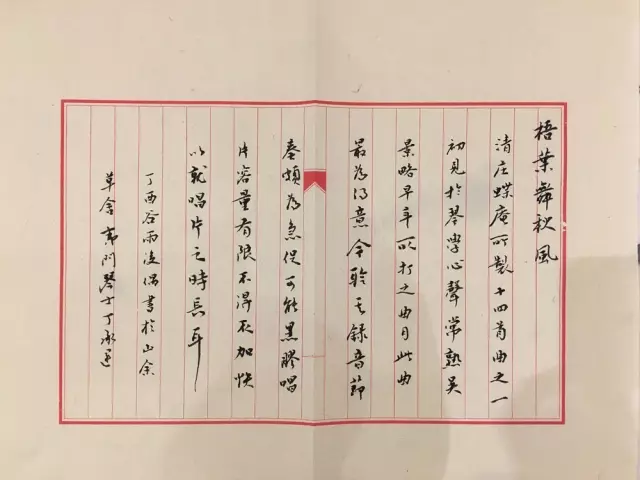 梧葉舞秋風
清庄蝶庵所製十四首曲之一
初見於琴學心聲常熟吴
景略早年所打之曲目此曲
最为得意今聆其録音節
奏頗为急促可能黑膠唱
片容量有限不得不加快
以就唱片之時長耳
丁酉谷雨後偶書於山余
草舍 吴門琴士丁承运